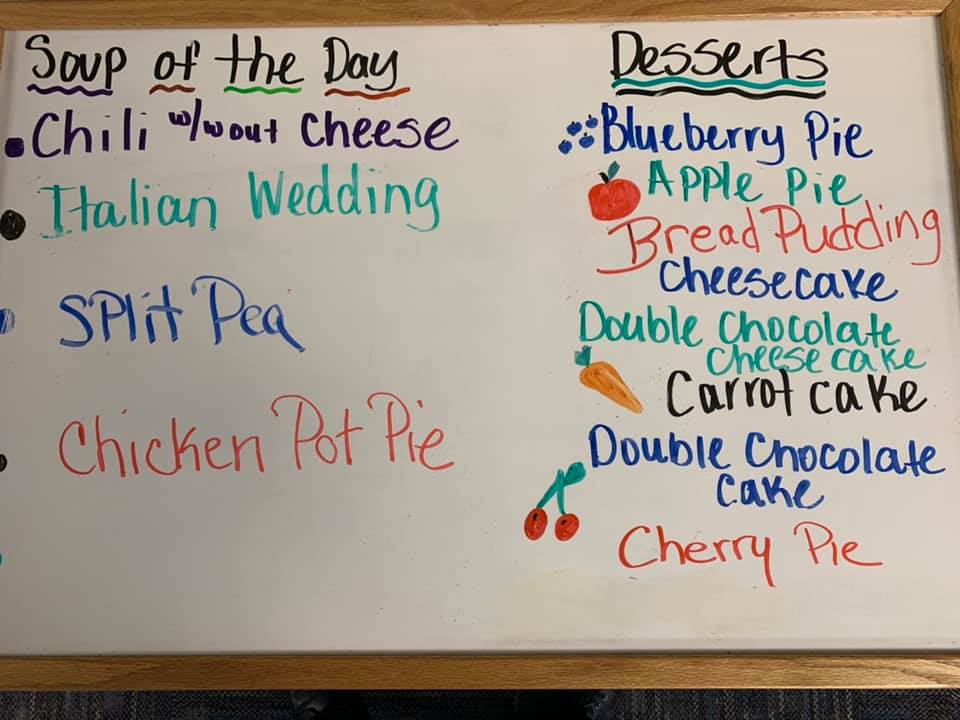 Soup of the Day
Chili w/wout Cheese
Italian Wedding
Split Pea
Chicken Pot Pie
Desserts
Blueberry Pie
Apple Pie
Bread Pudding
Cheesecake
Double Chocolate
cheese cake
Carrot cake
Double Chocolate
Cake
Cherry Pie